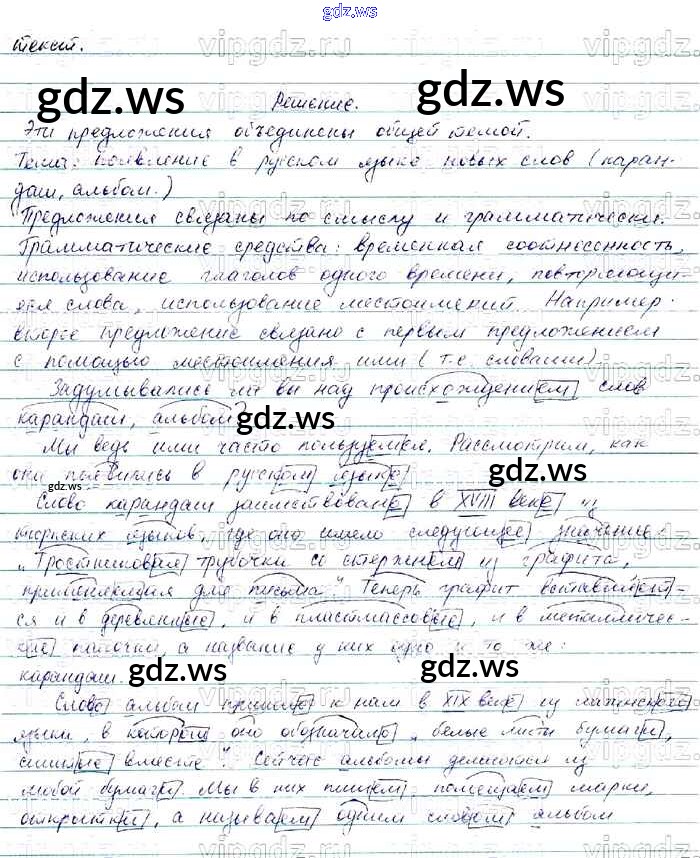 gdz.ws
текст.
Решение.
Эти предложения объединены общей темой.
Тема: появление в русском языке новых слов (каран-
даш, альбом.)
Предложения связаны по смыслу и грамматически.
Грамматические средства: временная соотнесенность,
использование глаголов одного времени, повторяющи-
еся слова, использование местоимений. Например:
второе предложение связано с первым предложением
с помощью местоимения ими (т.е. словами)
Задумывались ли вы над происхождением слов
карандаш, альбом?
Мы ведь ими часто пользуемся. Рассмотрим, как
они появились в русском языке
Слово карандаш заимствовано в XVIII веке из
тюркских языков, где оно имело следующее значение:
"Тростниковая трубочка со стержнем из графита,
применяемая для письма". Теперь графит вставляет-
ся и в деревянные, и в пластмассовые, и в металличес-
кие палочки, а название у них одно и то же:
карандаш.
Слово альбом пришло к нам в XIX веке из латинского
языка, в котором оно обозначало "белые листы бумаги,
сшитые вместе". Сейчас альбомы делаются из
любой бумаги. Мы в них пишем, помещаем марки,
открытки, а называем одним словом альбом